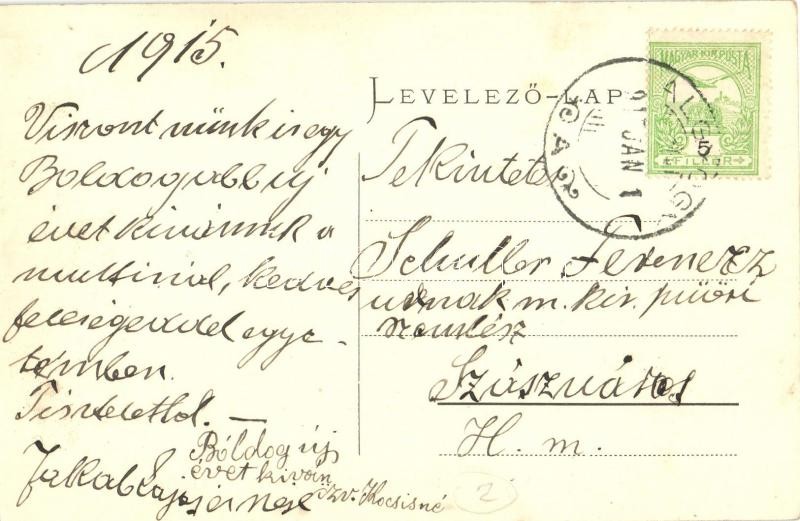 1915.
Viszont münk is egy
Boldogabb új
évet kivánunk a
multinál, kedves
feleségeddel egye-
temben.
Tisztelettel. —
Jakab
Bóldog új
évet kiván
özv. Kocsisné
LEVELEZŐ-LAP
MAGYAR KIR. POSTA
5
FILLÉR
JAN 1
Tekintetes
Schuller Ferencz
urnak m. kir.
Szászváros
H. m.
2